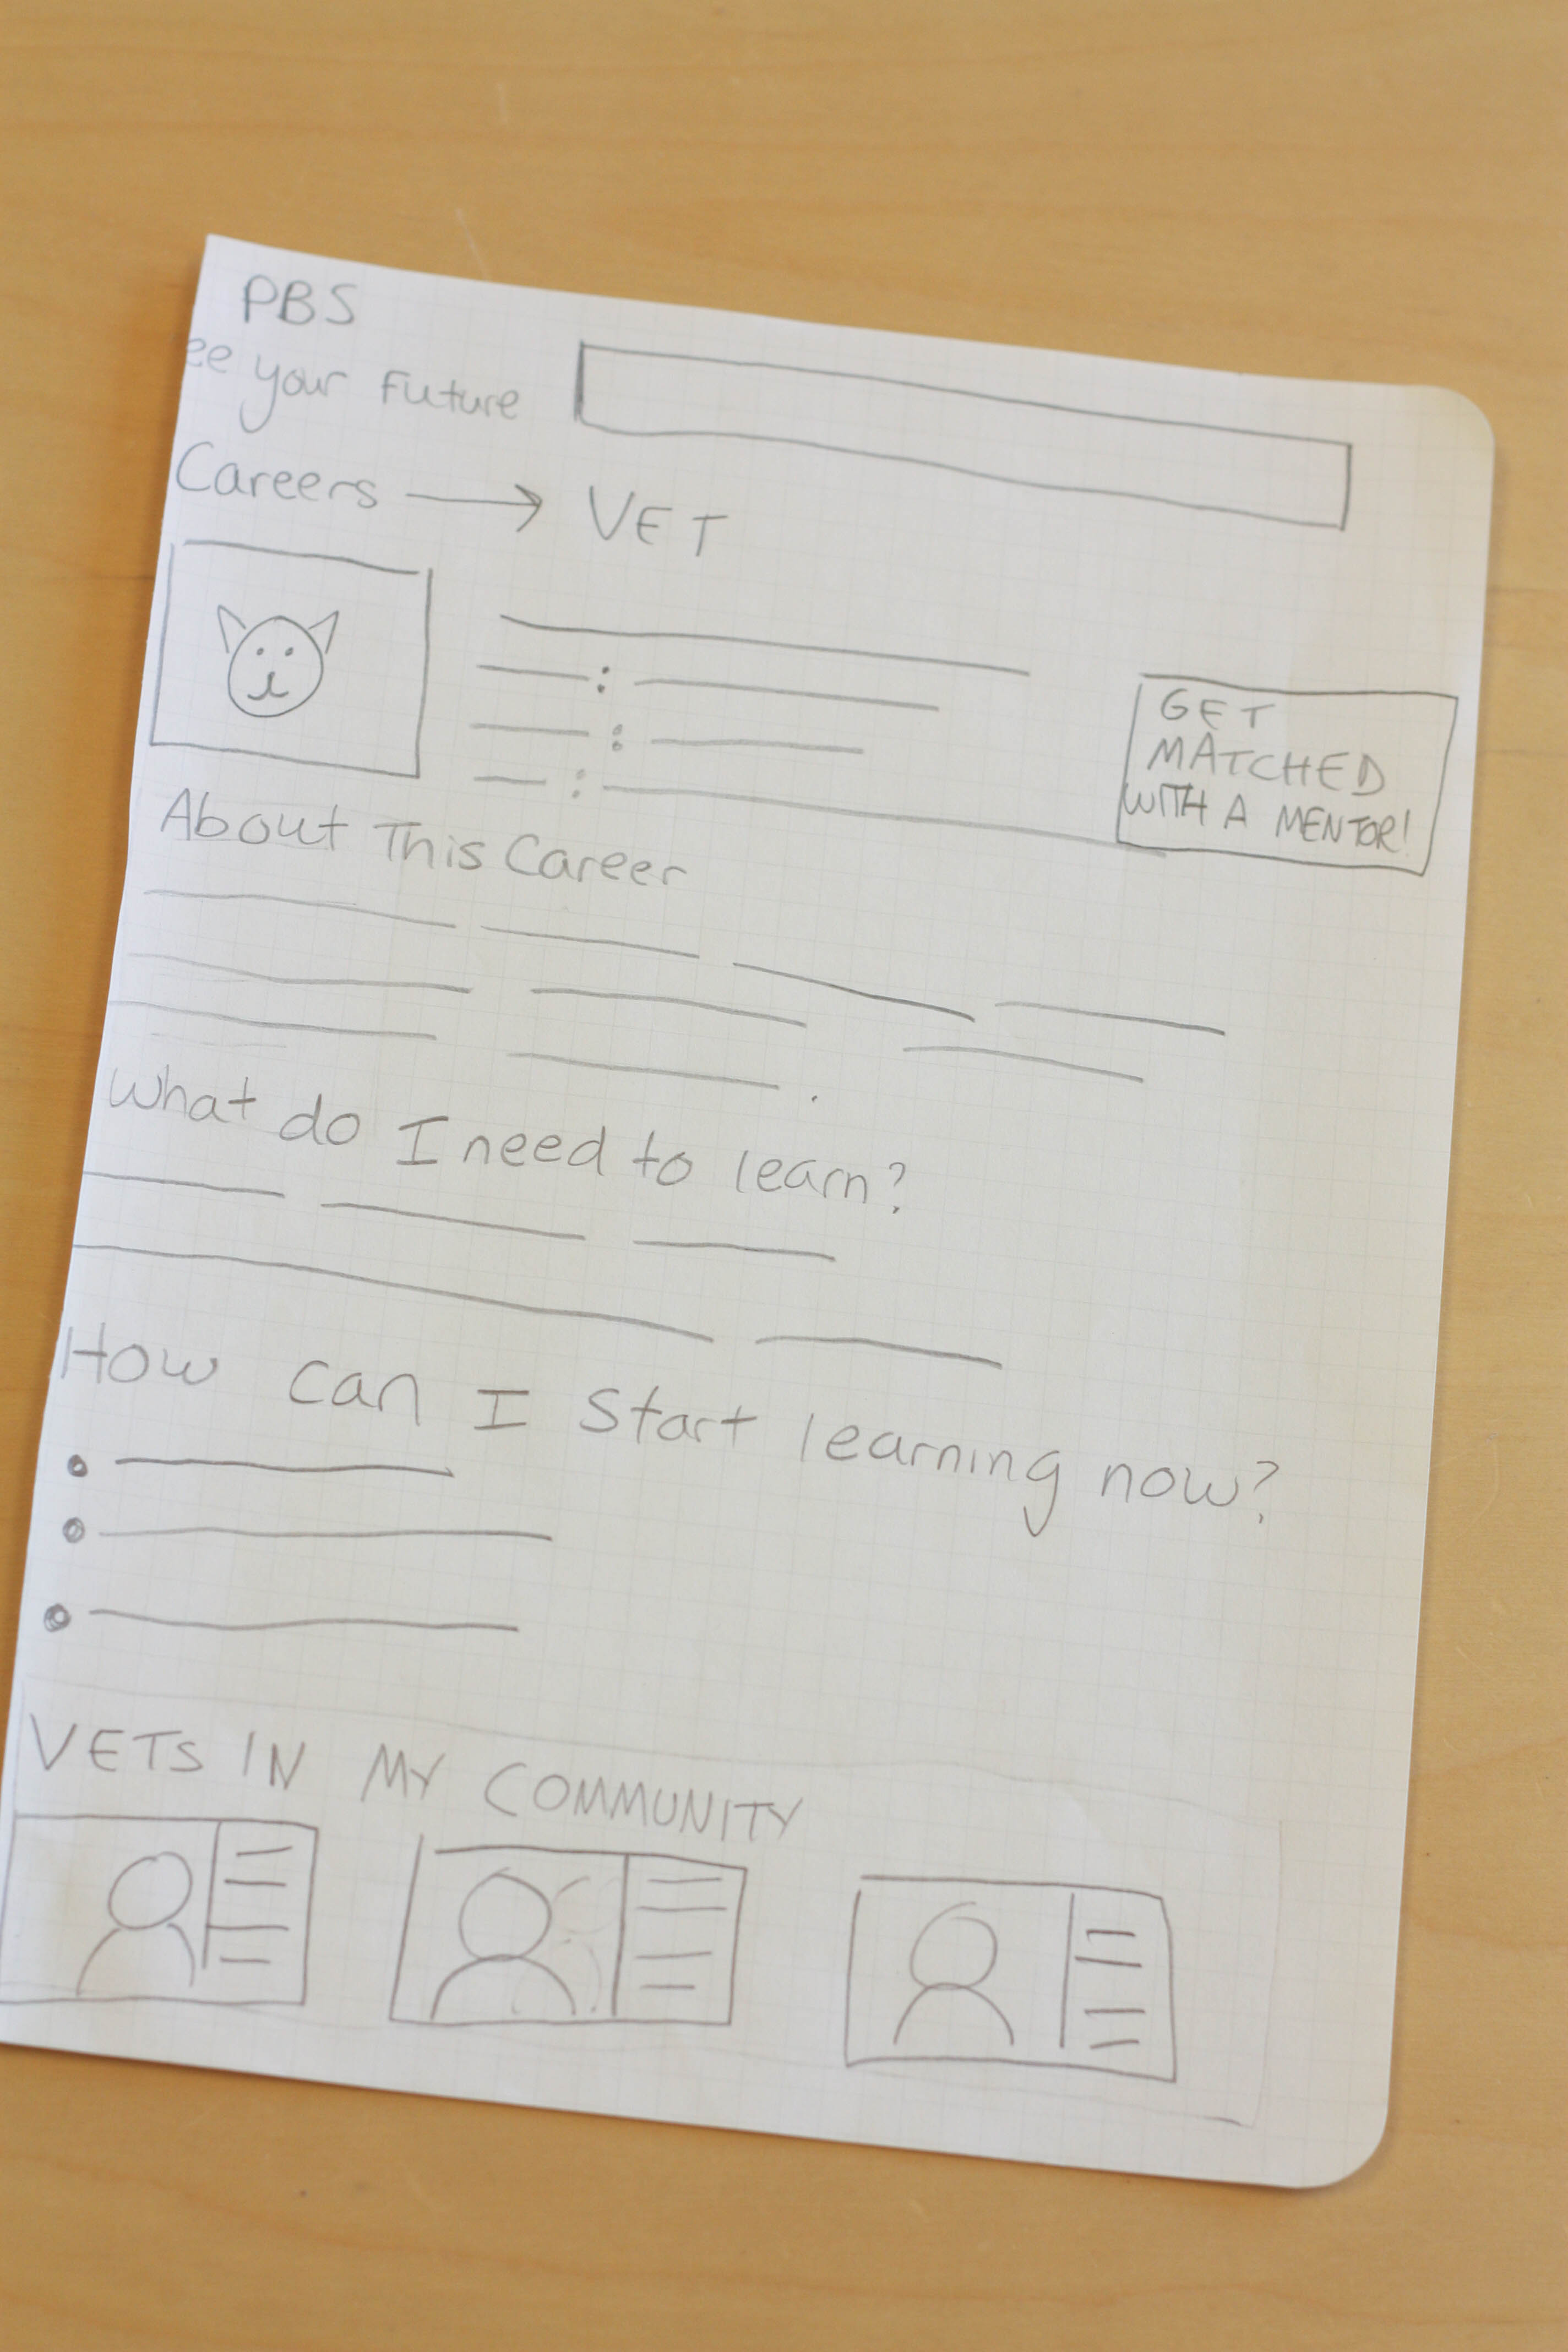 PBS
ee your Future
Careers → VET
GET
MATCHED
WITH A MENTOR!
About This Career
What do I need to learn?
How can I Start learning now?
VETS IN MY COMMUNITY